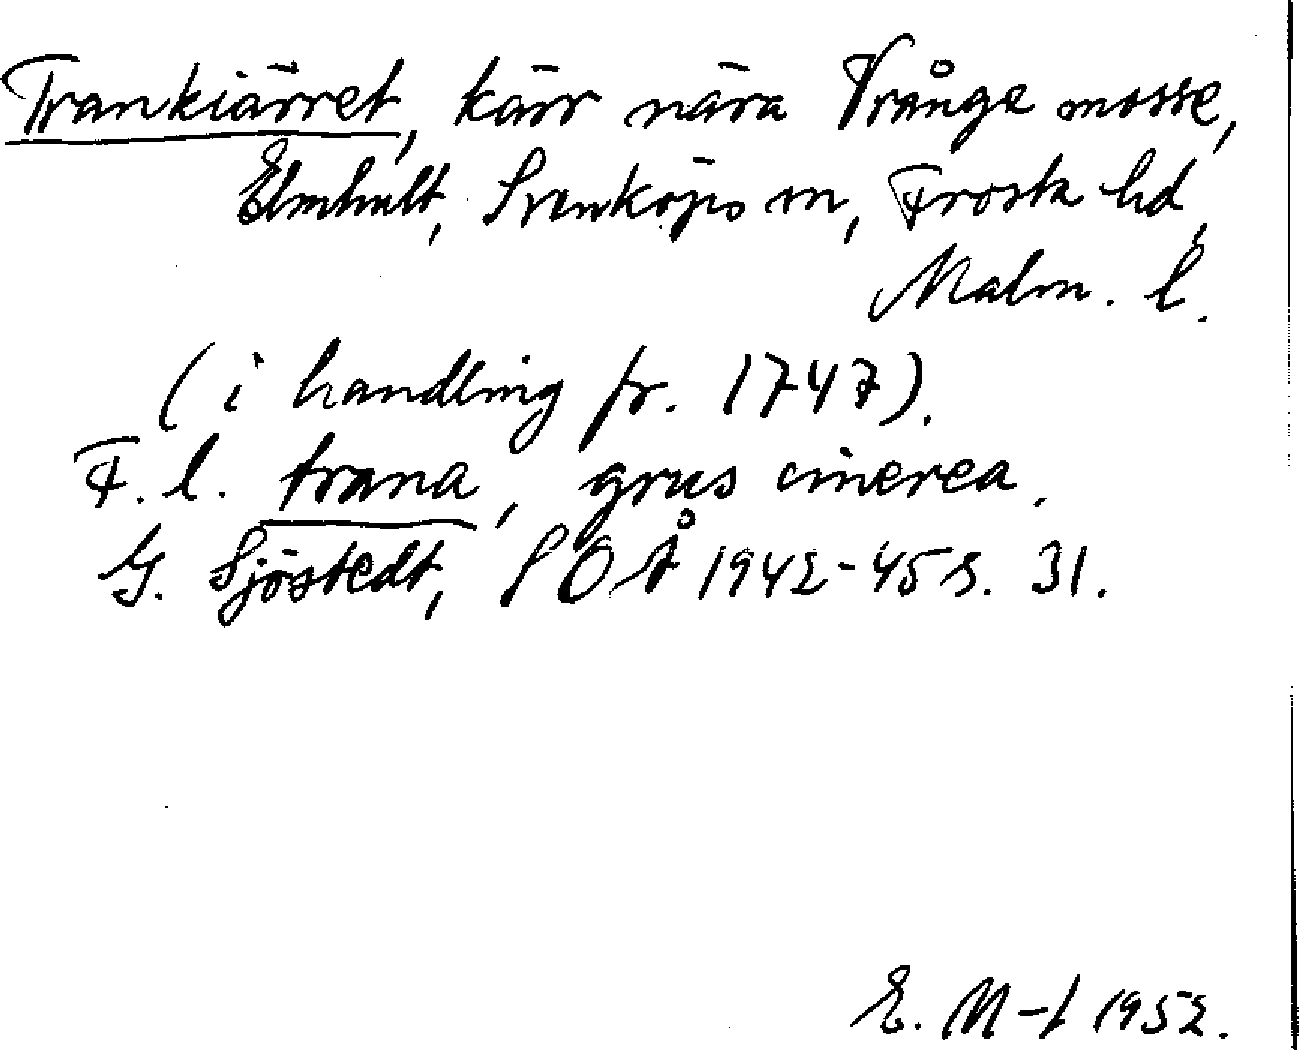 Trankiärret, kärr nära Vrånge mosse,
Elmhult, Svensköps sn, Frosta hd,
Malm. l.
(i handling fr. 1747).
F. l. trana, grus cinerea.
G. Sjöstedt, SOÅ 1942-45 s. 31.
E. M-t 1952.